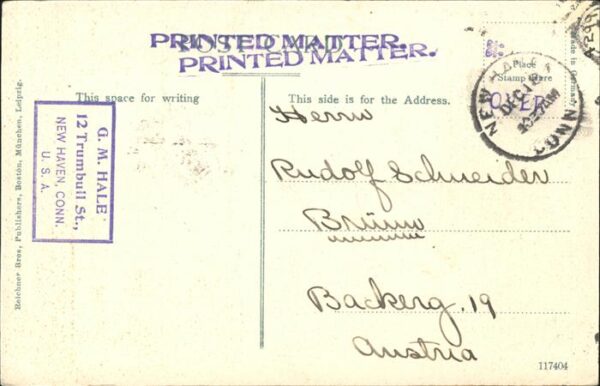 POST CARD
PRINTED MATTER.
PRINTED MATTER.
This space for writing
This side is for the Address.
Place
Stamp Here
OVER
Made in Germany
NEW HAVEN
CONN.
DEC 12
Herrn
Rudolf Schneider
Brünn
Backerg. 19
Austria
G. M. HALE
12 Trumbull St.,
NEW HAVEN, CONN.
U. S. A.
Reichner Bros, Publishers, Boston, München, Leipzig.
117404